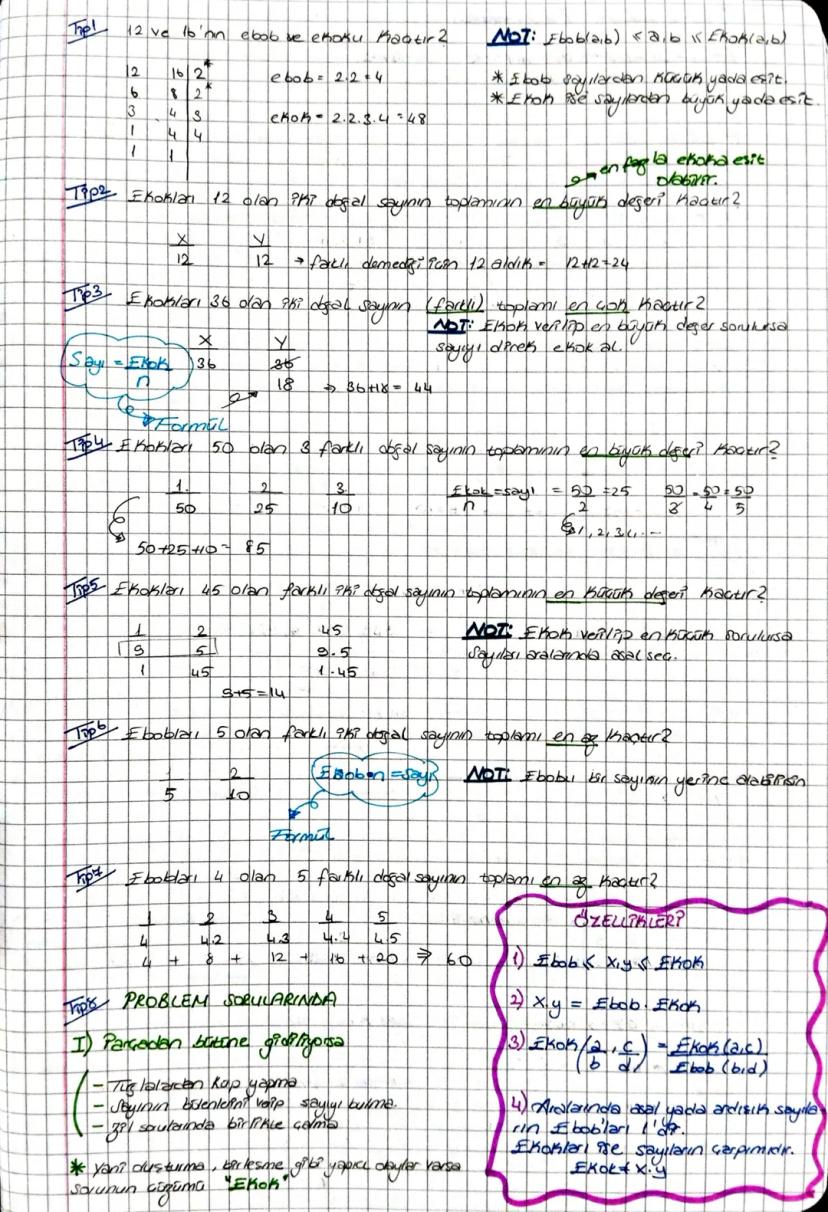 Tip1 12 ve 16'nın ebob ve ekoku kaçtır?
NOT: Ebob(a,b) ≤ a,b ≤ Ekok(a,b)
* Ebob sayılardan küçük yada eşit.
* Ekok ise sayılardan büyük yada eşit.
12 16 2*
6 8 2*
3 4 3
1 4 4
1 1
ebob = 2.2 = 4
ekok = 2.2.3.4 = 48
en fazla ekoka eşit
olabilir.
Tip2 Ekokları 12 olan iki doğal sayının toplamının en büyük değeri kaçtır?
X Y
12 12 → farklı demediği için 12 aldık = 12+12=24
Tip3 Ekokları 36 olan iki doğal sayının (farklı) toplamı en çok kaçtır?
NOT: Ekok verilip en büyük değer sorulursa
sayıyı direk ekok al.
Sayı = Ekok
n
Formül
X Y
36 36
18 ⇒ 36+18 = 44
Tip4 Ekokları 50 olan 3 farklı doğal sayının toplamının en büyük değeri kaçtır?
1. 2 3
50 25 10
50+25+10= 85
Ekok = sayı = 50 = 25 50 = 50 = 50
n 2 3 4 5
1,2,3,4,...
Tip5 Ekokları 45 olan farklı iki doğal sayının toplamının en küçük değeri kaçtır?
1 2 45
9 5 9.5
1 45 1.45
9+5=14
NOT: Ekok verilip en küçük sorulursa
sayıları aralarında asal seç.
Tip6 Ebobları 5 olan farklı iki doğal sayının toplamı en az kaçtır?
1 2
5 10
Ebob.n = sayı
Formül
NOT: Ebobu bir sayının yerine alabilirsin
Tip7 Ebobları 4 olan 5 farklı doğal sayının toplamı en az kaçtır?
1 2 3 4 5
4 4.2 4.3 4.4 4.5
4 + 8 + 12 + 16 + 20 ⇒ 60
Tip8 PROBLEM SORULARINDA
I) Parçadan bütüne gidiliyorsa
- Tuğlalardan küp yapma
- Sayının bölenlerini verip sayıyı bulma.
- Zil sorularında birlikte çalma
* Yani oluşturma, birleşme gibi yapıcı olaylar varsa
sorunun çözümü "EKOK"
ÖZELLİKLERİ
1) Ebob ≤ x,y ≤ Ekok
2) x.y = Ebob . Ekok
3) Ekok (a/b , c/d) = Ekok(a,c) / Ebob (b,d)
4) Aralarında asal yada ardışık sayıla
rın Ebob'ları 1'dir.
Ekokları ise sayıların çarpımıdır.
Ekok = x.y